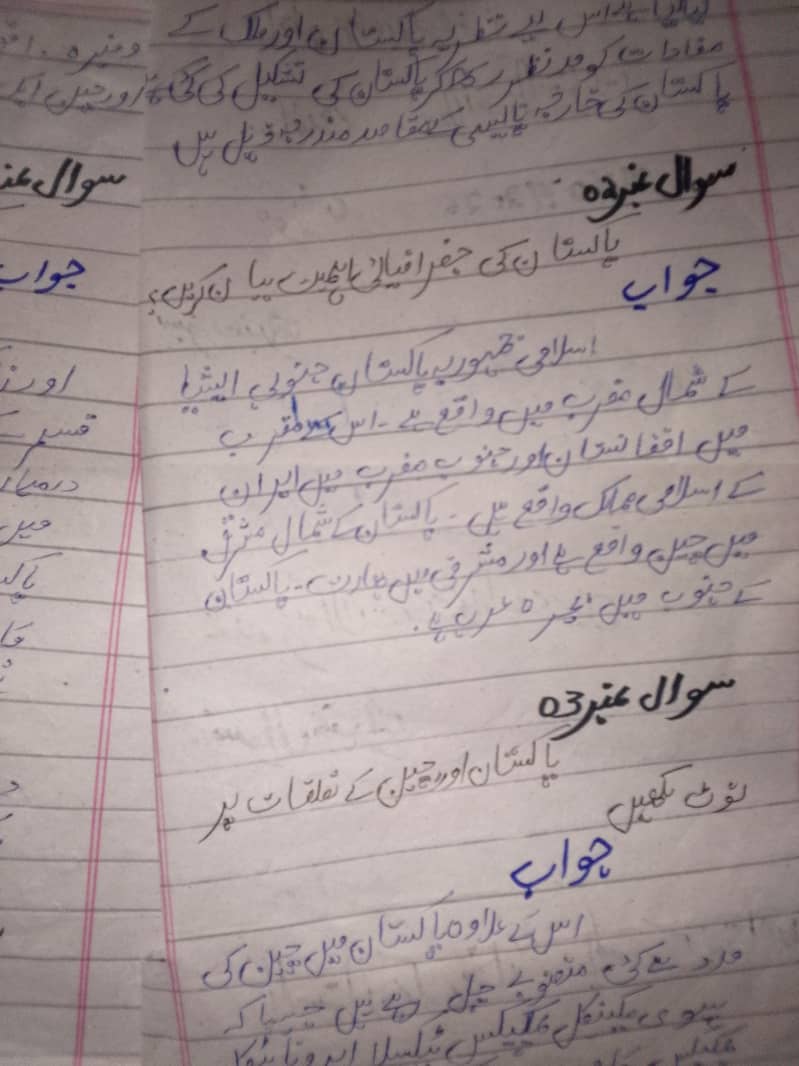 اس لیے نظریہ پاکستان اور ملک کے
مفادات کو مدنظر رکھ کر پاکستان کی تشکیل کی گئی ہے
پاکستان کی خارجہ پالیسی کے مقاصد مندرجہ ذیل ہیں
سوال نمبر 02
پاکستان کی جغرافیائی اہمیت بیان کریں؟
جواب
اسلامی جمہوریہ پاکستان جنوبی ایشیا
کے شمال مغرب میں واقع ہے ۔ اس کے مغرب
میں افغانستان اور جنوب مغرب میں ایران
کے اسلامی ممالک واقع ہیں ۔ پاکستان کے شمال مشرق
میں چین واقع ہے اور مشرق میں بھارت ۔ پاکستان
کے جنوب میں بحیرہ عرب ہے ۔
سوال نمبر 03
پاکستان اور چین کے تعلقات پر
نوٹ لکھیں
جواب
اس کے علاوہ پاکستان میں چین کی
مدد سے کئی منصوبے چل رہے ہیں جیسا کہ
ہیوی مکینکل کمپلیکس ٹیکسلا
وغیرہ
اور چین
سوال
جواب
اور
قسم کے
درمیان
میں